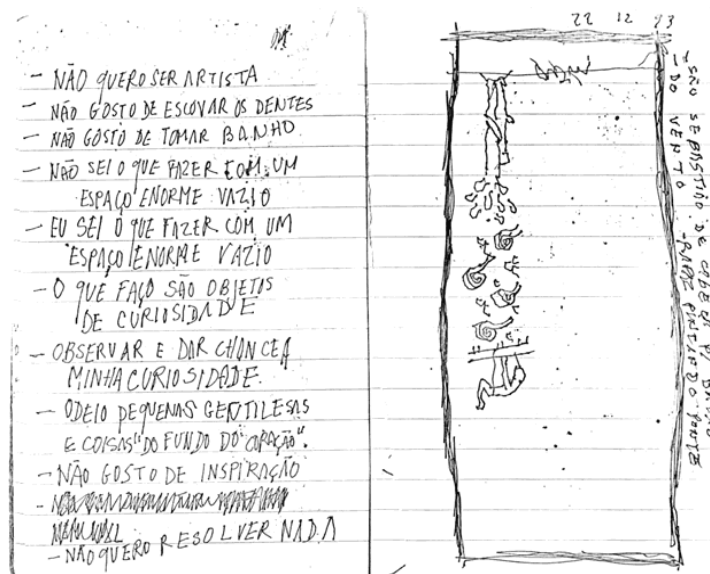 - NÃO QUERO SER ARTISTA
- NÃO GOSTO DE ESCOVAR OS DENTES
- NÃO GOSTO DE TOMAR BANHO
- NÃO SEI O QUE FAZER COM UM
ESPAÇO ENORME VAZIO
- EU SEI O QUE FAZER COM UM
ESPAÇO ENORME VAZIO
- O QUE FAÇO SÃO OBJETOS
DE CURIOSIDADE
- OBSERVAR E DAR CHANCE A
MINHA CURIOSIDADE.
- ODEIO PEQUENAS GENTILESAS
E COISAS "DO FUNDO DO "CORAÇÃO".
- NÃO GOSTO DE INSPIRAÇÃO
MANUAL
- NÃO QUERO RESOLVER NADA
22 12 93
- SÃO SEBASTIÃO DE CABEÇA P/ BAIXO
- DO VENTO
- RAPAZ PINTANDO PONTE